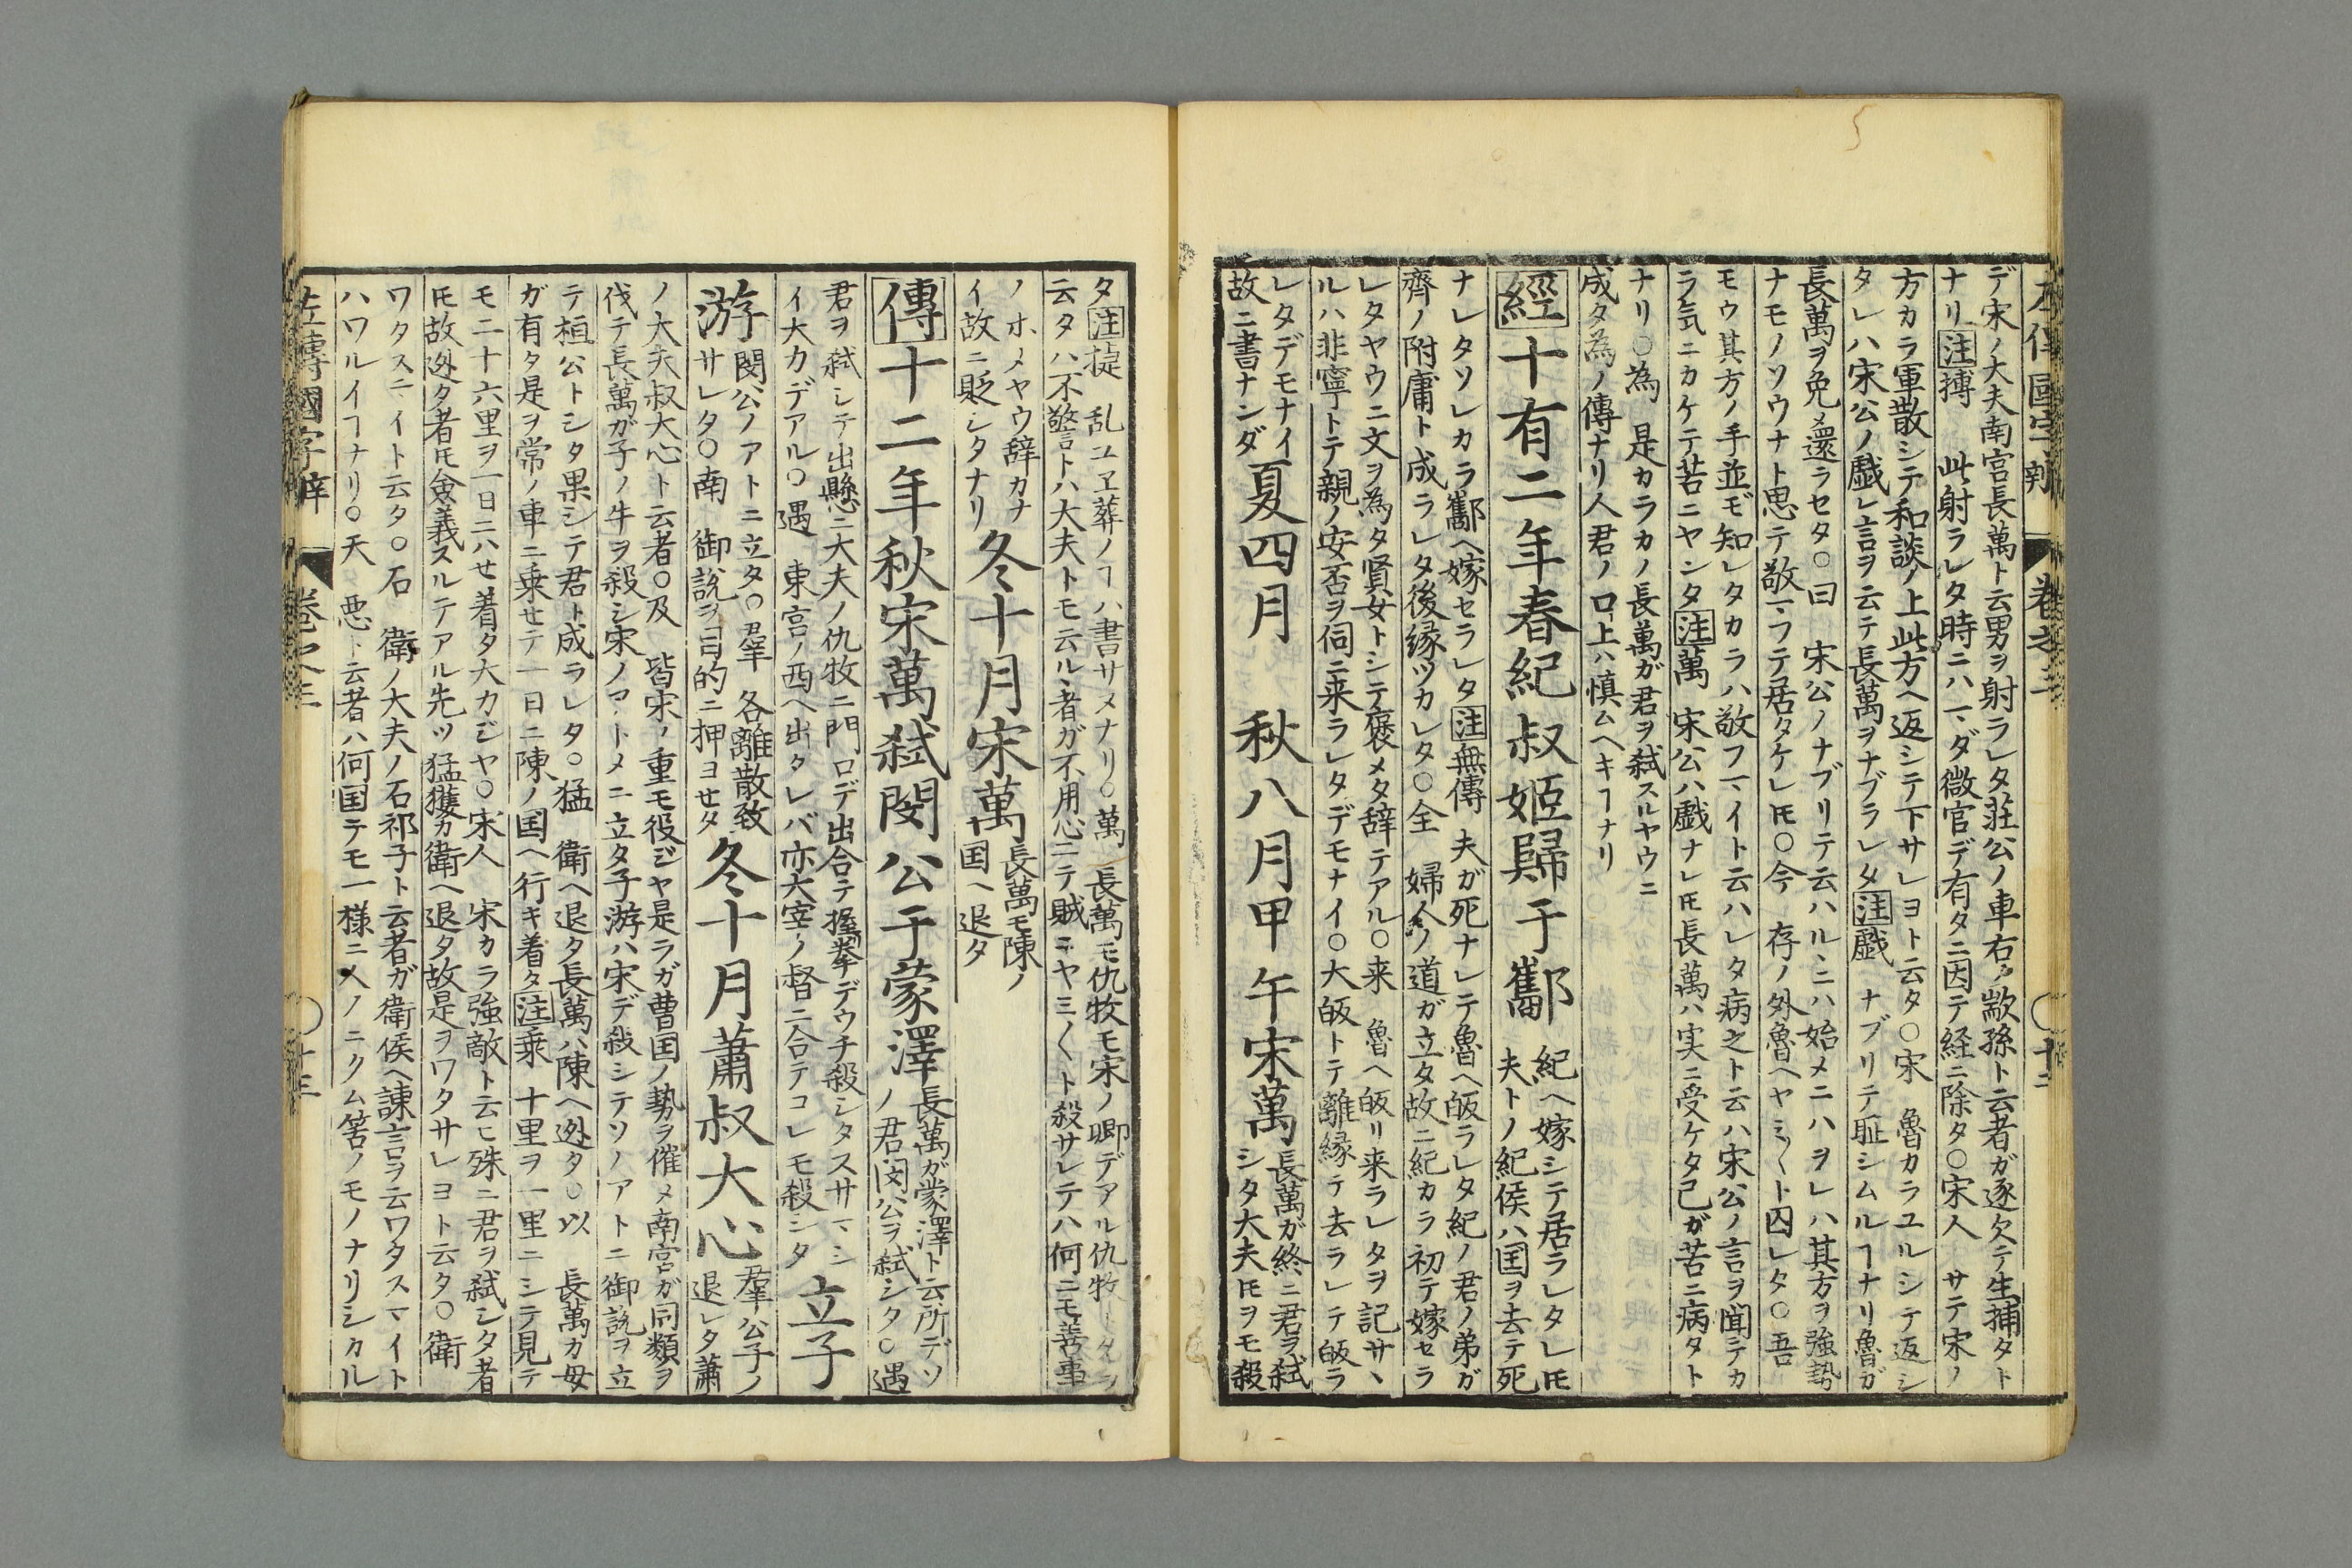 左傳國字辨 卷之三 〇十二
デ宋ノ大夫南宮長萬ト云男ヲ射ラレタ荘公ノ車右ノ歂孫ト云者ガ逐欠テ生捕タト
ナリ注搏 此射ラレタ時ニハマダ微官デ有タニ因テ経ニ除タ〇宋人 サテ宋ノ
方カラ軍散シテ和談ノ上此方ヘ返シテ下サレヨト云タ〇宋 魯カラユルシテ返シ
タレハ宋公ノ戯レ言ヲ云テ長萬ヲナブラレタ注戯 ナブリテ耻シムルヿナリ魯ガ
長萬ヲ免メ還ラセタ〇曰 宋公ノナブリテ云ハルヽニハ始メニハヲレハ其方ヲ強勢
ナモノソウナト思テ敬マフテ居タケレ𪜈〇今 存ノ外魯ヘヤミ〳〵ト囚レタ〇吾
モウ其方ノ手並モ知レタカラハ敬フマイト云ハレタ病之ト云ハ宋公ノ言ヲ聞テカ
ラ気ニカケテ苦ニヤンタ注萬 宋公ハ戯ナレ𪜈長萬ハ実ニ受ケタ己ガ苦ニ病タト
ナリ〇為 是カラカノ長萬ガ君ヲ弑スルヤウニ
成タ為ノ傳ナリ人君ノ口上ハ慎ムヘキヿナリ
經十有二年春紀叔姫歸于酅
紀ヘ嫁シテ居ラレタレ𪜈
夫トノ紀侯ハ国ヲ去テ死
ナレタソレカラ酅ヘ嫁セラレタ注無傳 夫ガ死ナレテ魯ヘ皈ラレタ紀ノ君ノ弟ガ
齊ノ附庸ト成ラレタ後縁ヅカレタ〇全 婦人ノ道ガ立タ故ニ紀カラ初テ嫁セラ
レタヤウニ文ヲ為タ賢女トシテ褒メタ辞テアル〇来 魯ヘ皈リ来ラレタヲ記サヽ
ルハ非寧トテ親ノ安否ヲ伺ニ来ラレタデモナイ〇大皈トテ離縁テ去ラレテ皈ラ
レタデモナイ
故ニ書ナンダ
夏四月 秋八月甲午宋萬
長萬ガ終ニ君ヲ弑
シタ大夫𪜈ヲモ殺
タ注捷 乱ユヱ葬ノヿハ書サヌナリ〇萬 長萬モ仇牧モ宋ノ卿デアル仇牧
云タハ不警トハ大夫トモ云ルヽ者ガ不用心ニテ賊ニヤミ〳〵ト殺サレテハ何ニモ善事
ノホメヤウ辞カナ
イ故ニ貶シタナリ
冬十月宋萬
長萬モ陳ノ
国ヘ退タ
傳十二年秋宋萬弑閔公于蒙澤
長萬ガ蒙澤ト云所デソ
ノ君閔公ヲ弑シタ〇遇
君ヲ弑シテ出懸ニ大夫ノ仇牧ニ門口デ出合テ握拳デウチ殺シタスサマシ
イ大力デアル〇遇 東宮ノ西ヘ出タレバ亦大宰ノ督ニ合テコレモ殺シタ
立子
游
閔公ノアトニ立タ〇羣 各離散致
サレタ〇南 御説ヲ目的ニ押ヨセタ
冬十月蕭叔大心
羣公子ノ
退レタ蕭
ノ大夫叔大心ト云者〇及 皆宋ノ重モ役ジヤ是ラガ曹国ノ勢ヲ催メ南宮ガ同類ヲ
伐テ長萬ガ子ノ牛ヲ殺シ宋ノマトメニ立タ子游ハ宋デ殺シテソノアトニ御説ヲ立
テ桓公トシタ果シテ君ト成ラレタ〇猛 衛ヘ退タ長萬ハ陳ヘ迯タ〇以 長萬カ母
ガ有タ是ヲ常ノ車ニ乗セテ一日ニ陳ノ国ヘ行キ着タ注乗 十里ヲ一里ニシテ見テ
モ二十六里ヲ一日ニハセ着タ大力ジヤ〇宋人 宋カラ強敵ト云ヒ殊ニ君ヲ弑シタ者
𪜈故迯タ者𪜈僉義スルテアル先ツ猛獲カ衛ヘ退タ故是ヲワタサレヨト云タ〇衛
ワタスマイト云タ〇石 衛ノ大夫ノ石祁子ト云者ガ衛侯ヘ諌言ヲ云ワタスマイト
ハワルイヿナリ〇天 悪ト云者ハ何国テモ一様ニ人ノニクム筈ノモノナリシカル
左傳國字辨 卷之三 〇十三